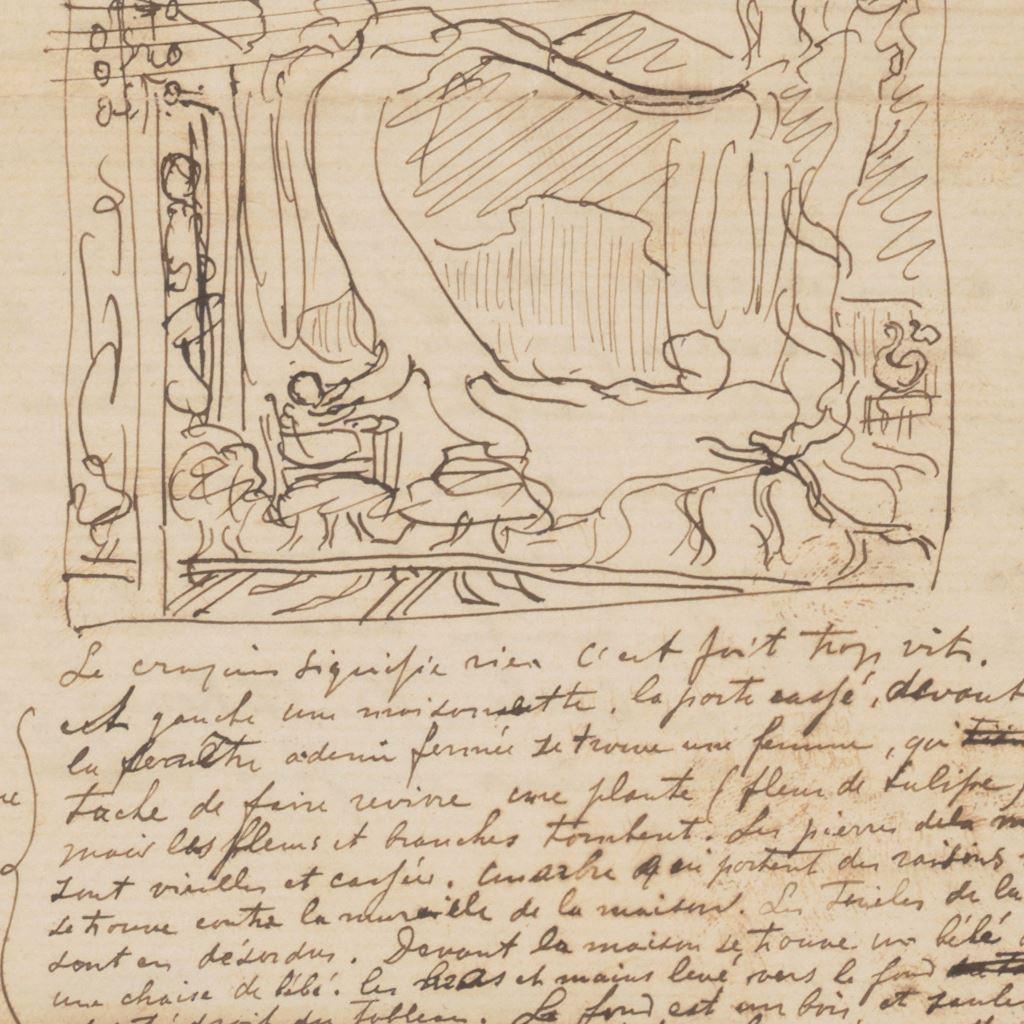 Le croquis signifie rien. C'est fait trop vite.
et gauche une maisonnette, la porte cassé, devant
la fenêtre a demi fermée se trouve une femme, qui
tache de faire revivre une plante (fleur de tulipe)
mais les fleurs et branches tombent. Les pierres dela
sont vieilles et cassées. Un arbre qui portent des raisins
se trouve contre la muraille de la maison. Les Tuiles de la
sont en désordre. Devant la maison se trouve un bébé
une chaise de bébé. les bras et mains levé vers le fond
droit du Tableau. Le fond est un bois, et saule